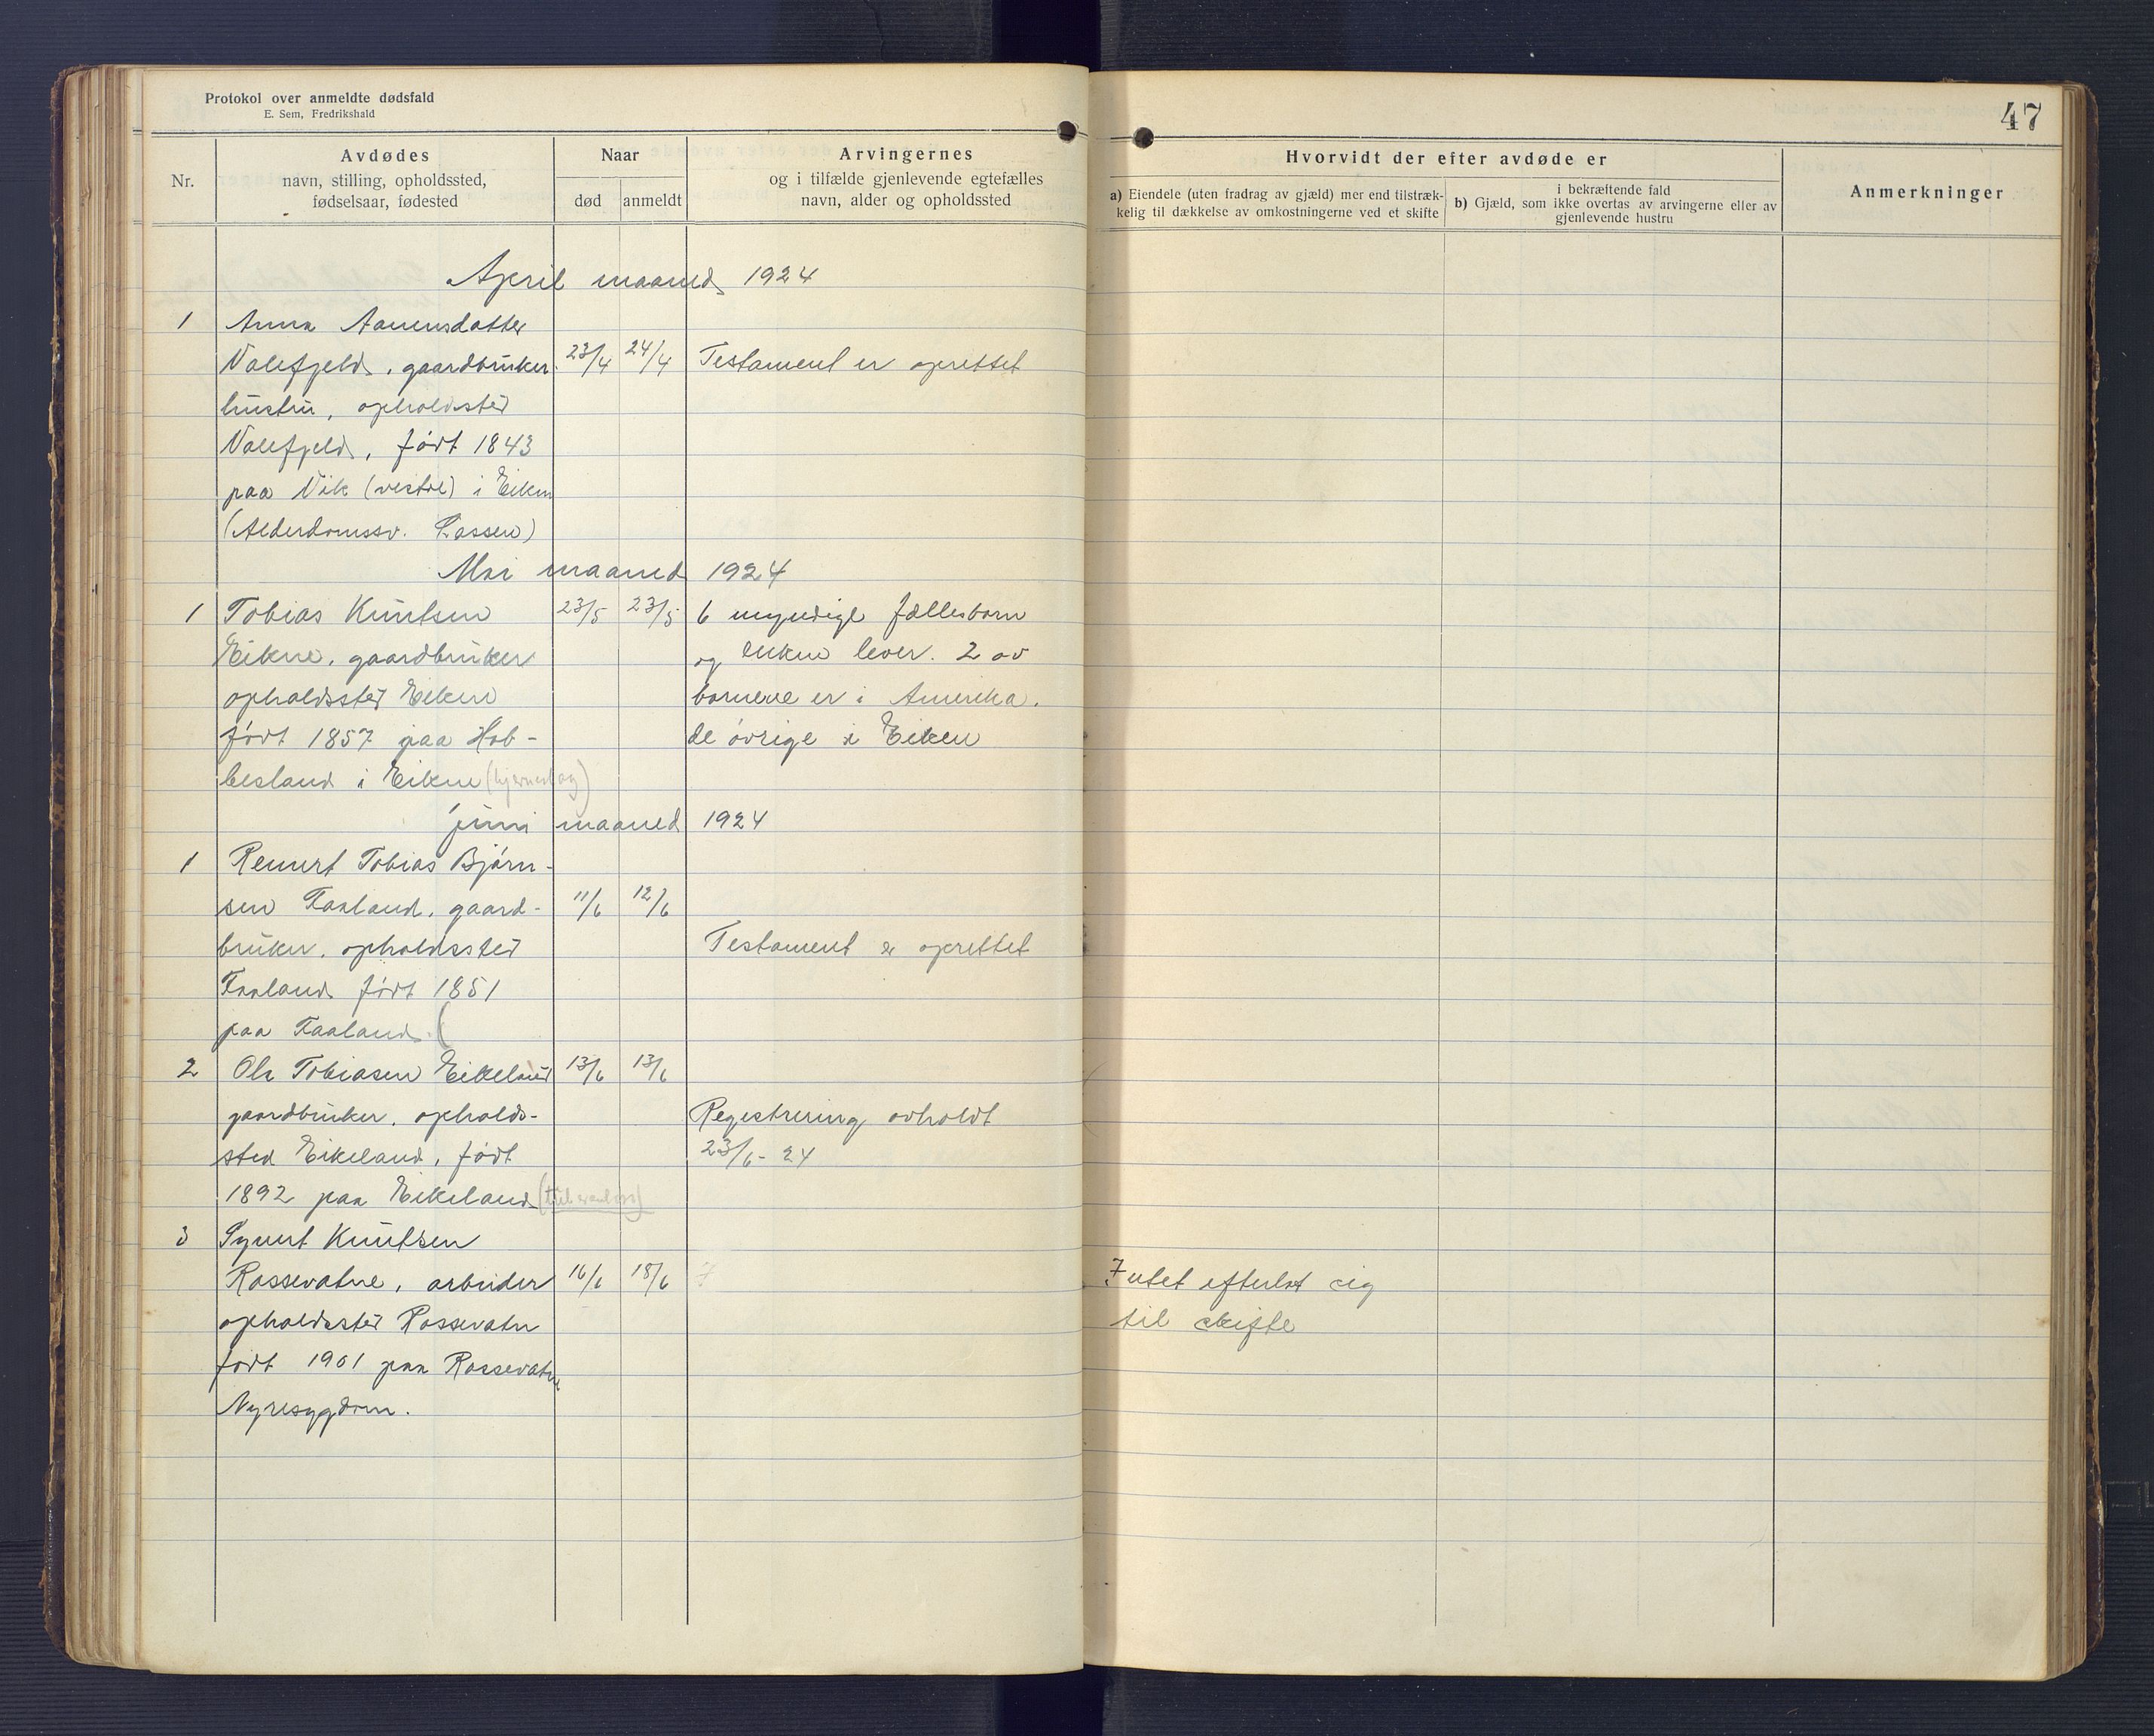 Protokol over anmeldte dødsfald
E. Sem, Fredrikshald
47
Nr.
Avdødes
navn, stilling, opholdssted,
fødselsaar, fødested
Naar
død
anmeldt
Arvingernes
og i tilfælde gjenlevende egtefælles
navn, alder og opholdssted
Hvorvidt der efter avdøde er
a) Eiendele (uten fradrag av gjæld) mer end tilstræk-
kelig til dækkelse av omkostningerne ved et skifte
i bekræftende fald
b) Gjæld, som ikke overtas av arvingerne eller av
gjenlevende hustru
Anmerkninger
April maaned 1924
1 Anna Aanensdatter
Vollefjeld, gaardbruker 23/4 24/4 Testament er oprettet
hustru, opholdssted
Vollefjeld, født 1843
paa Vik (vestre) i Eiken
(Alderdomssv.
Mai maaned 1924
1 Tobias Knutsen 23/5 23/5 6 myndige fællesbarn
Eikne, gaardbruker og enken lever. 2 av
opholdssted Eiken barnene er i Amerika.
født 1857 paa Hob- de øvrige i Eiken
besland i Eikne (hjerneslag)
juni maaned 1924
1 Reinert Tobias Bjørn-
sen Faaland, gaard- 11/6 12/6
bruker, opholdssted Testament er oprettet
Faaland født 1851
paa Faaland. (
2 Ole Tobiasen Eikeland 13/6 13/6
gaardbruker, opholds- Registrering avholdt
sted Eikeland, født 23/6- 24
1892 paa Eikeland
3 Syvert Knutsen
Rossevatne, arbeider 16/6 18/6 Intet efterlot sig
opholdssted Rossevatn til skifte
født 1901 paa Rossevatne
Nyresygdom.